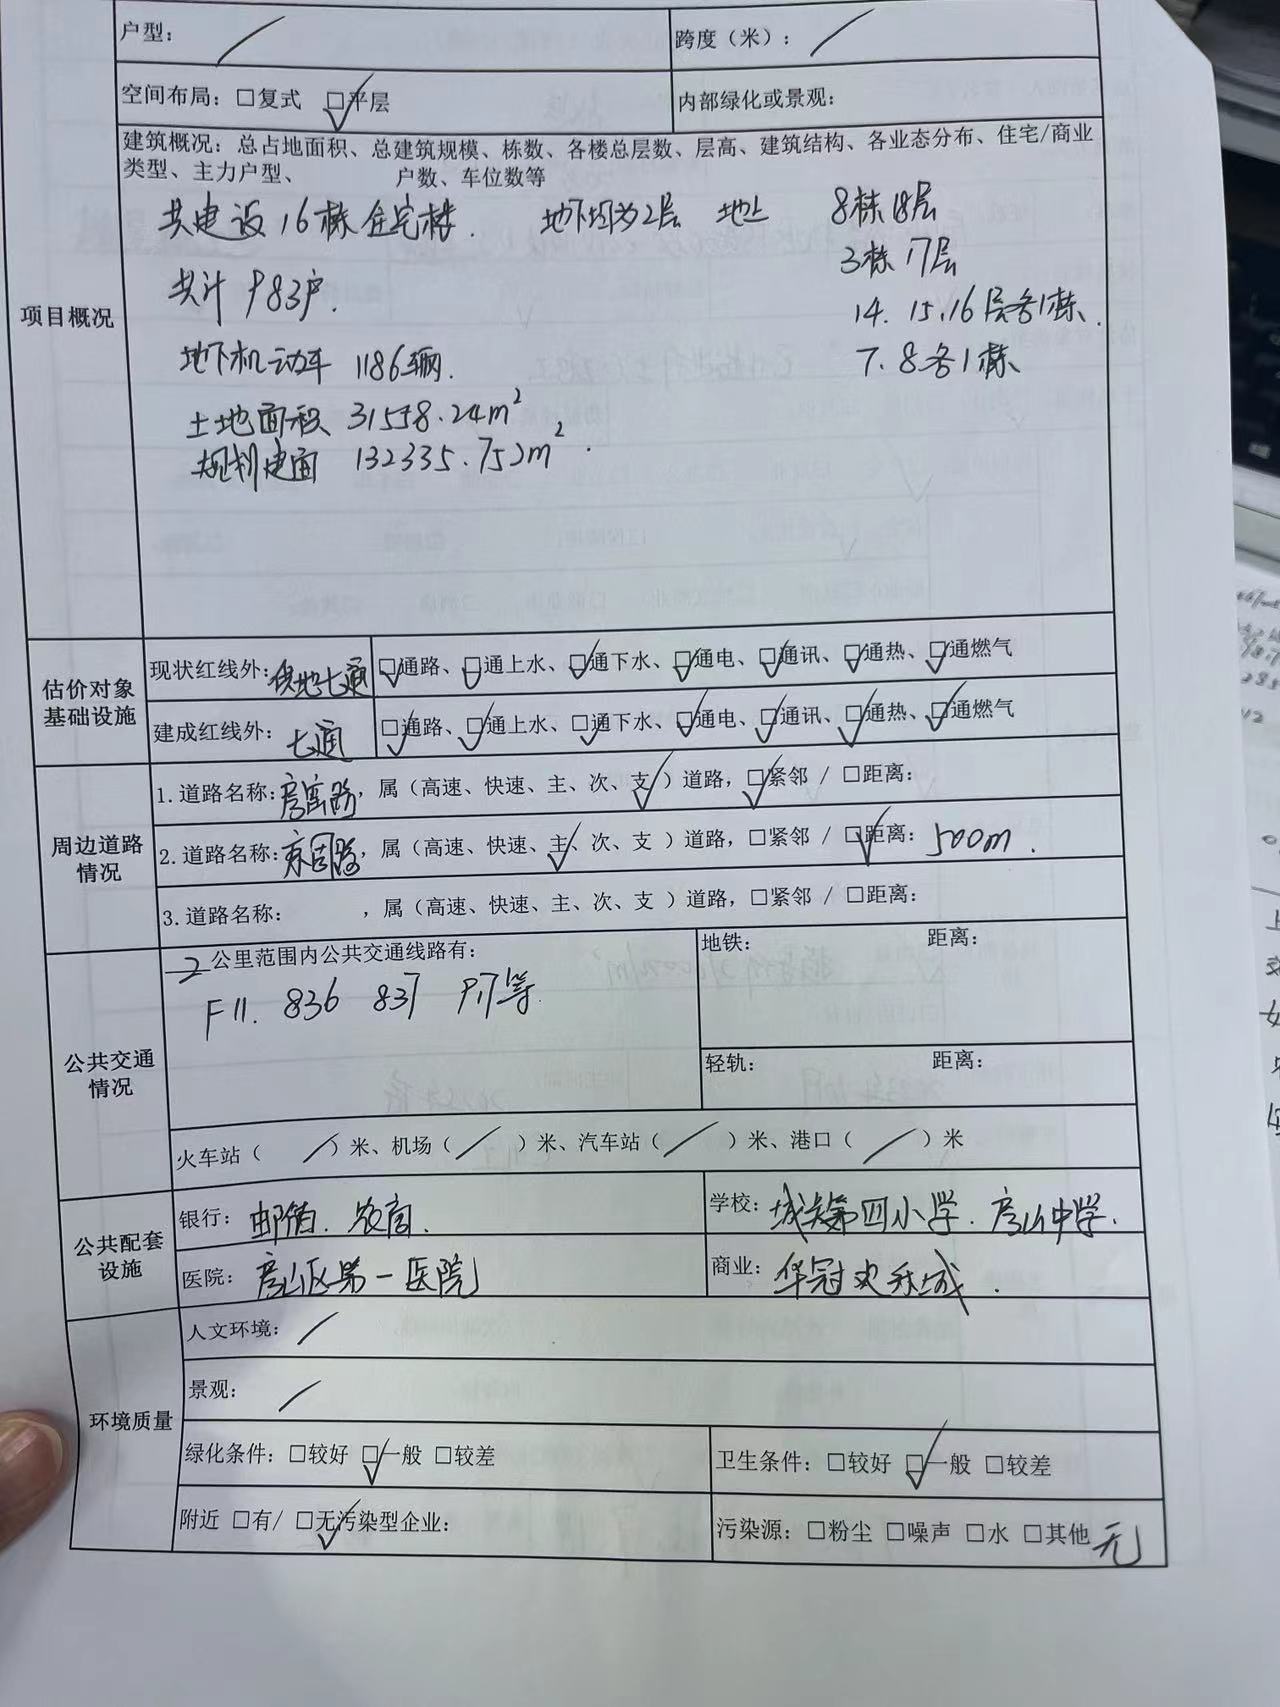 户型： / 跨度（米）： /
空间布局：□复式 ☑平层 内部绿化或景观：
建筑概况：总占地面积、总建筑规模、栋数、各楼总层数、层高、建筑结构、各业态分布、住宅/商业
类型、主力户型、 户数、车位数等
共建设16栋住宅楼. 地下均为2层 地上 8栋18层
3栋17层
项目概况
共计983户.
14.15.16层各1栋.
地下机动车 1186辆. 7.8各1栋
土地面积 31548.24m²
规划建面 132335.752m².
估价对象
基础设施
现状红线外：供地七通 ☑通路、☑通上水、☑通下水、☑通电、☑通讯、☑通热、☑通燃气
建成红线外：七通 ☑通路、☑通上水、☑通下水、☑通电、☑通讯、☑通热、☑通燃气
周边道路
情况
1.道路名称：房窑路，属（高速、快速、主、次、支√）道路，☑紧邻 / □距离：
2.道路名称：京周路，属（高速、快速、主√、次、支 ）道路，□紧邻 / ☑距离：500m.
3.道路名称： ，属（高速、快速、主、次、支 ）道路，□紧邻 / □距离：
公共交通
情况
2公里范围内公共交通线路有： 地铁： 距离：
F11. 836 837 917等.
轻轨： 距离：
火车站（ / ）米、机场（ / ）米、汽车站（ / ）米、港口（ / ）米
公共配套
设施
银行：邮储. 农商. 学校：城关第四小学.房山中学.
医院：房山区第一医院 商业：华冠欢乐城.
环境质量
人文环境： /
景观： /
绿化条件：□较好 ☑一般 □较差 卫生条件：□较好 ☑一般 □较差
附近 □有/ ☑无污染型企业： 污染源：□粉尘 □噪声 □水 □其他 无